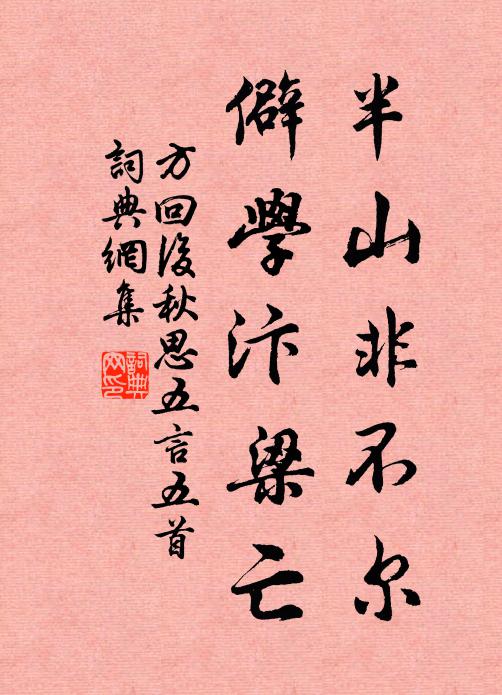 半山非不尔
僻學汴梁亡
方回後秋思五言五首
詞典網集
詞典
网印